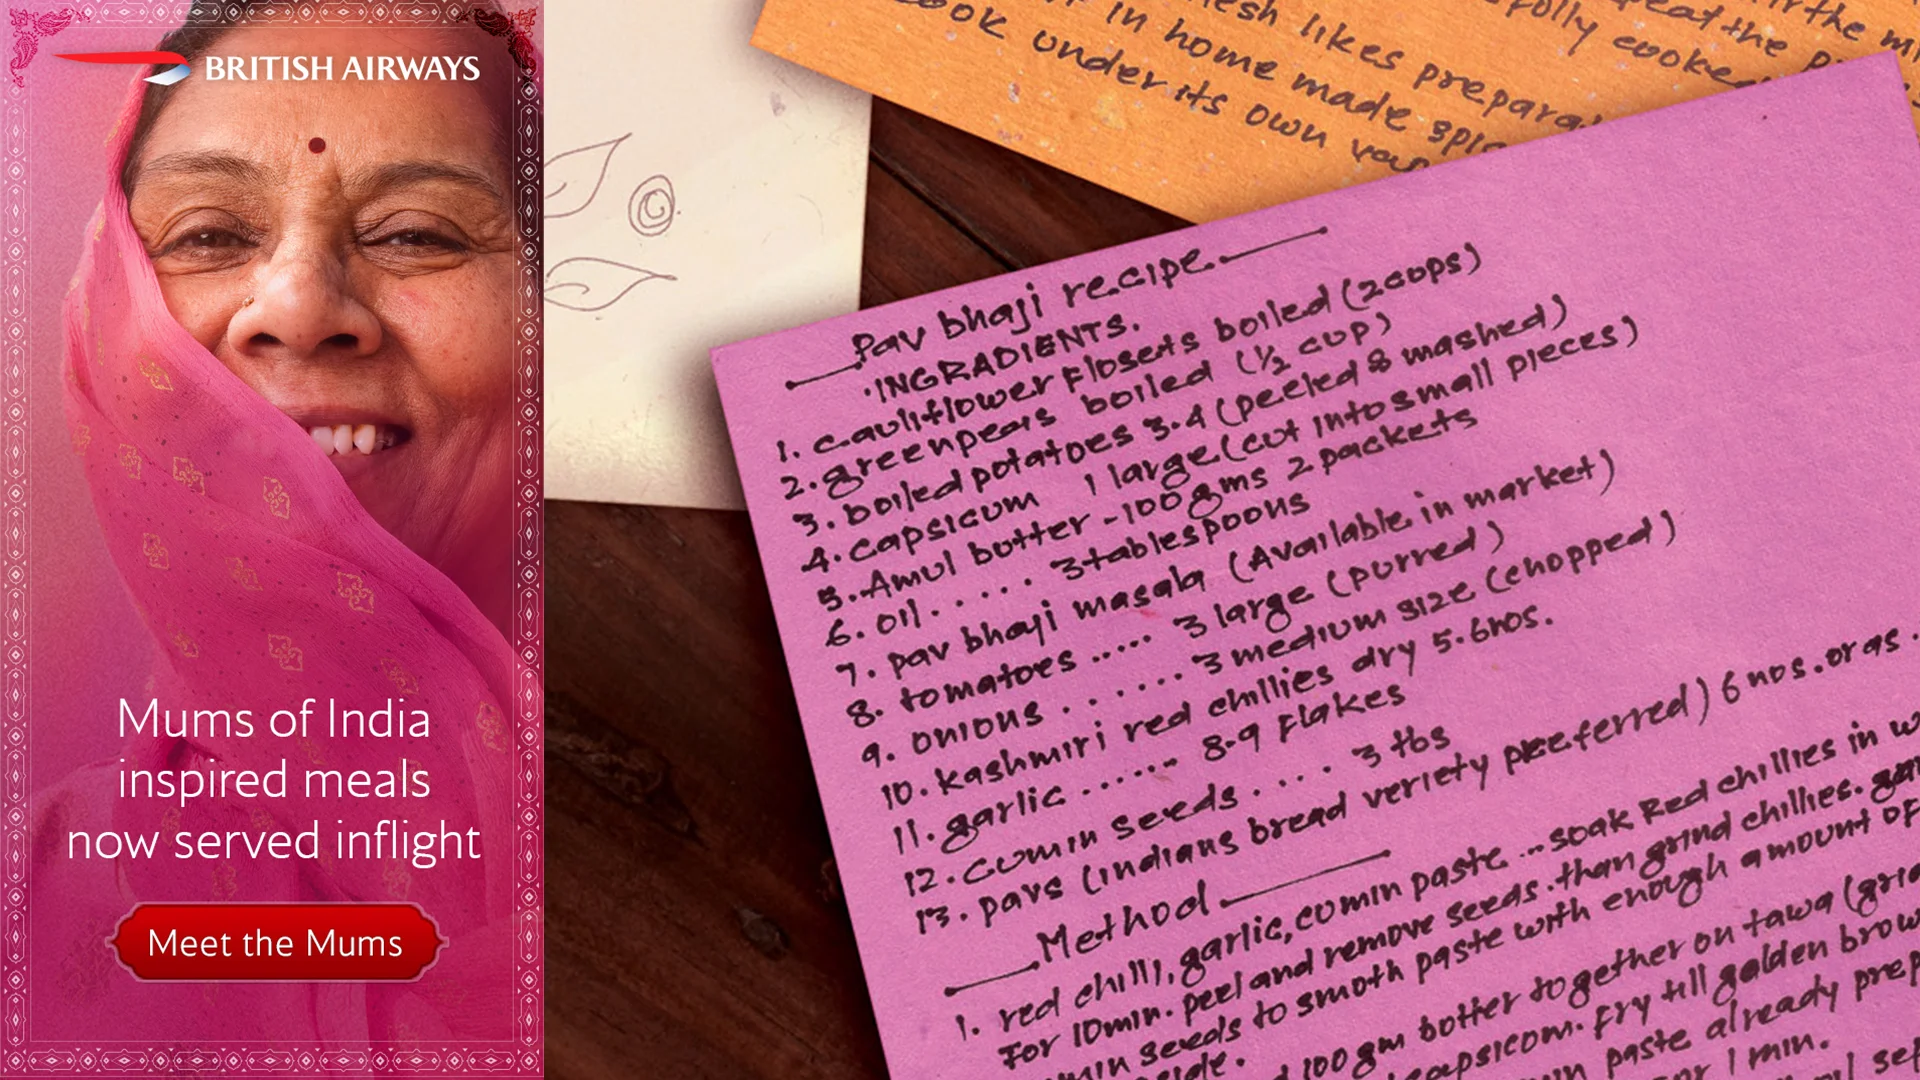 BRITISH AIRWAYS
Mums of India
inspired meals
now served inflight
Meet the Mums
in the mi
eat the p
fully cooked
esh likes prepara
in home made spic
cook under its own vap
Pav bhaji recipe
INGRADIENTS.
1. cauliflower flosets boiled (2cups)
2. greenpeas boiled (1/2 cup)
3. boiled potatoes 3-4 (peeled & mashed)
4. capsicum 1 large (cut into small pieces)
5. Amul butter - 100gms 2 packets
6. oil ..... 3 tablespoons
7. pav bhaji masala (Available in market)
8. tomatoes ..... 3 large (purred)
9. onions ...... 3 medium size (chopped)
10. kashmiri red chillies dry 5-6nos.
11. garlic ...... 8-9 flakes
12. cumin seeds .... 3 tbs
13. pavs (indians bread veriety preeferred) 6 nos. or as
Method
1. red chilli, garlic, comin paste ... soak Red chillies in w
For 10min. peel and remove seeds. than grind chillies. gar
min seeds to smoth paste with enough amount of
side.
100gm botter together on tawa (grid
capsicom. fry till golden brow
paste already prep
or 1 min.